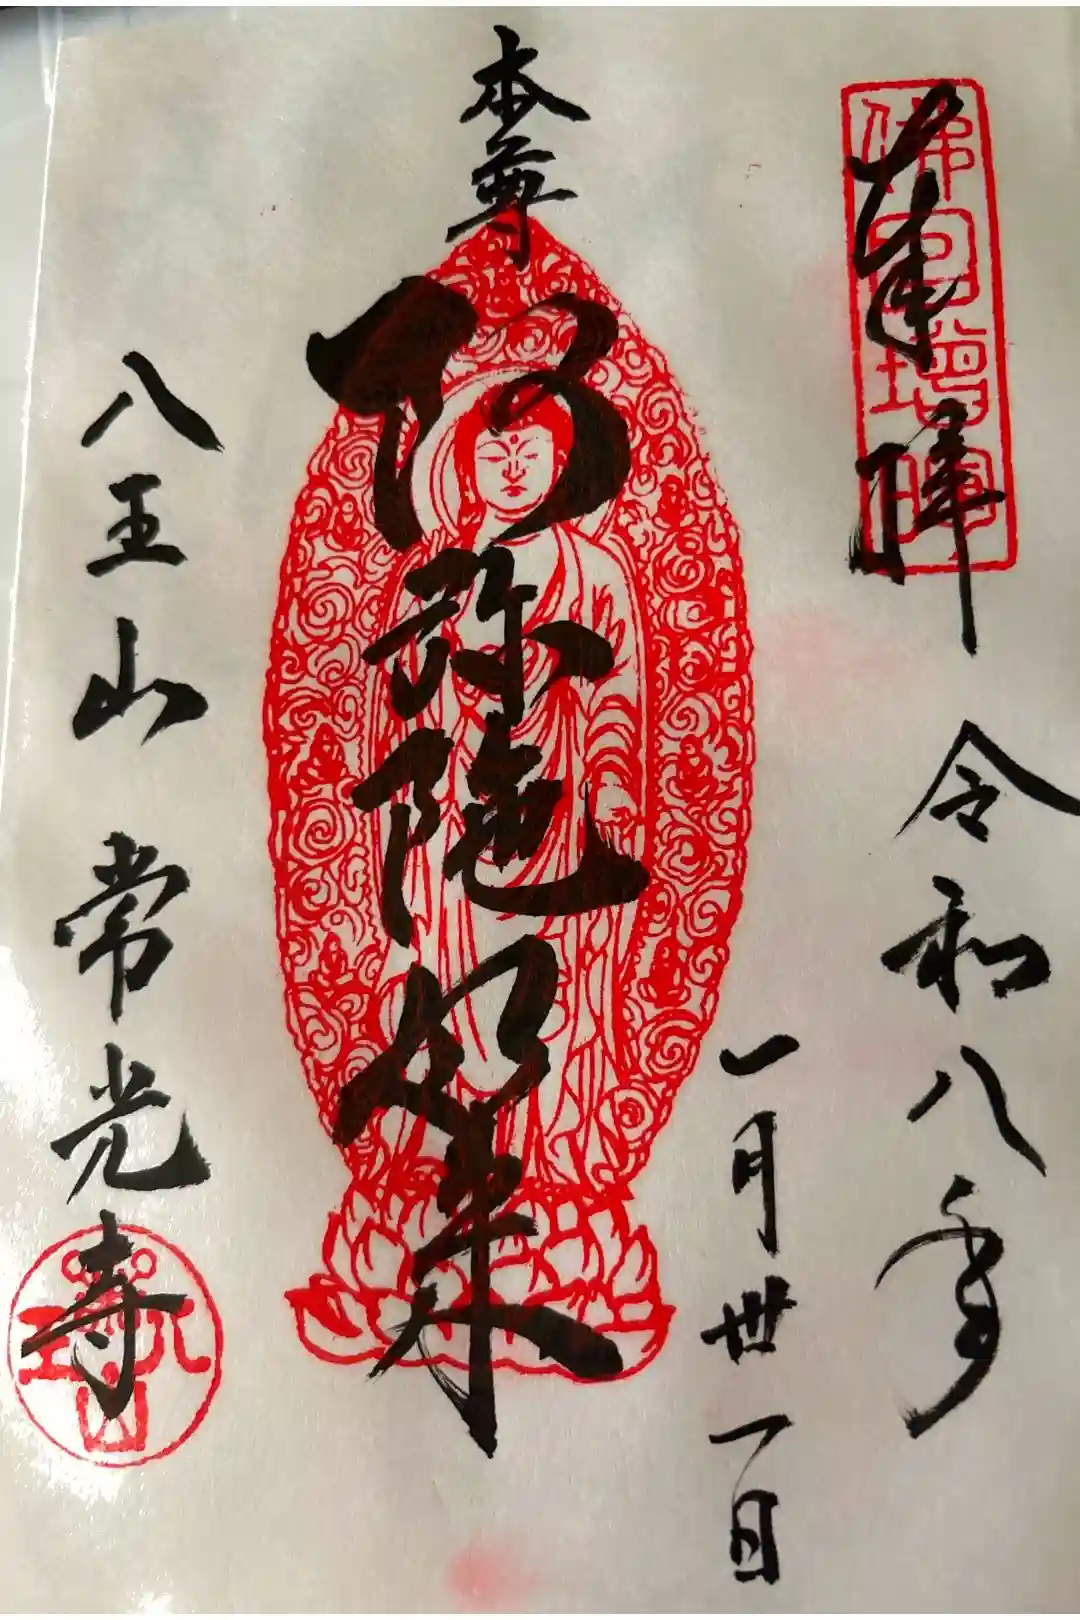 奉拝
令和八年
一月卅一日
本尊
阿弥陀如来
八王山 常光寺
佛日増輝